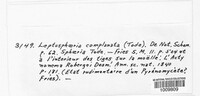 B/49. Leptosphaeria complanata (Tode). De Not. Schem.
p. 62. Sphaeria Tode. - Fries S. M. II. p. 504 et
à l'intérieur des tiges sur la moëlle: L'Acty
nonema Robergei Desm. Ann. sc. nat. 1840
p. 181 (Etat rudimentaire d'un Pyrénomycète,
Fries). -